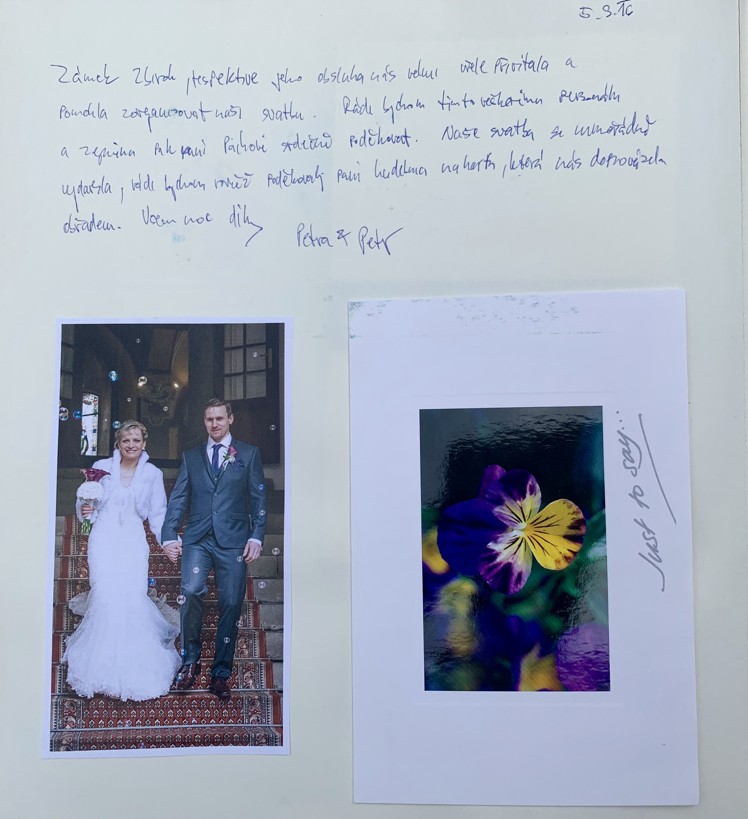 5.3.16
Zámek Zbiroh, respektive jeho obsluha nás velmi vřele přivítala a
pomohla zorganisovat naši svatbu. Rádi bychom tímto veškerému personálu
a zejména pak paní Páchové srdečně poděkovat. Naše svatba se mimořádně
vydařila, rádi bychom rovněž poděkovali paní, která nás doprovázela
obřadem. Všem moc díky
Petra & Petr
Just to say...